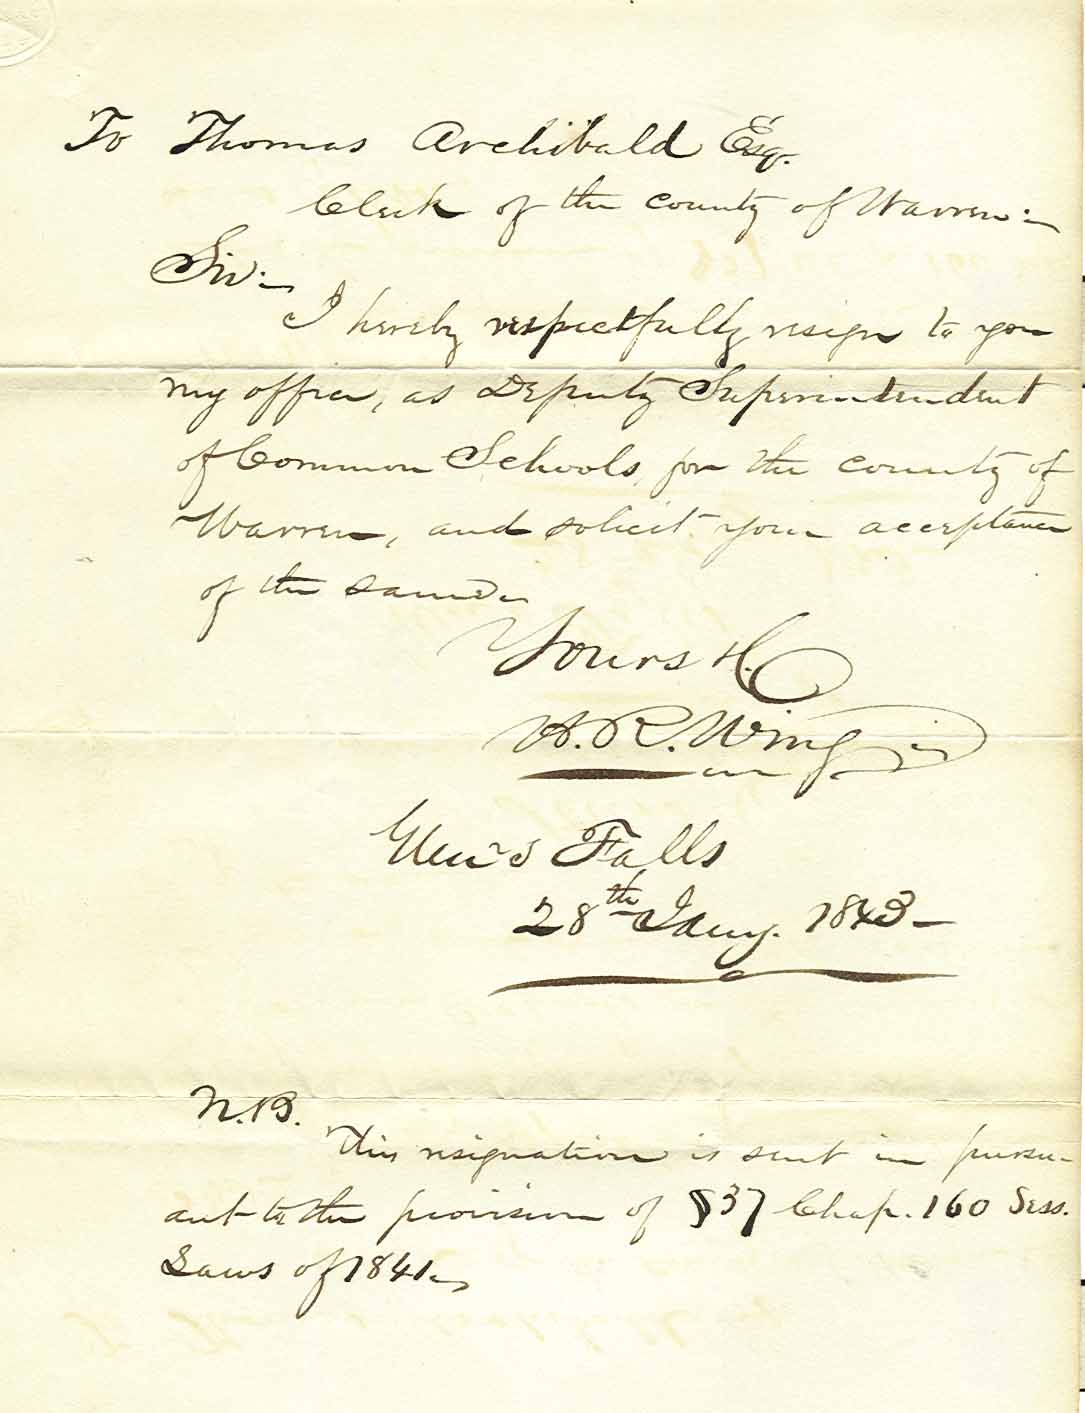 To Thomas Archibald Esq.
Clerk of the county of Warren:
Sir:
I hereby respectfully resign to you
my office, as Deputy Superintendent
of Common Schools, for the county of
Warren, and solicit your acceptance
of the same.
Yours &c
H. R. Wing
Glen's Falls
28th Jany. 1843
N.B.
This resignation is sent in pursu-
ant to the provision of §37 Chap. 160 Sess.
Laws of 1841.